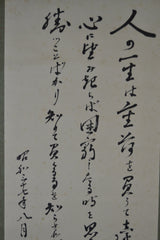 人の一生は重荷を負うて遠
心に望み起らば困窮したる時を思
勝つことばかり知りて負くる事を知らざれ
昭和三十七年八月